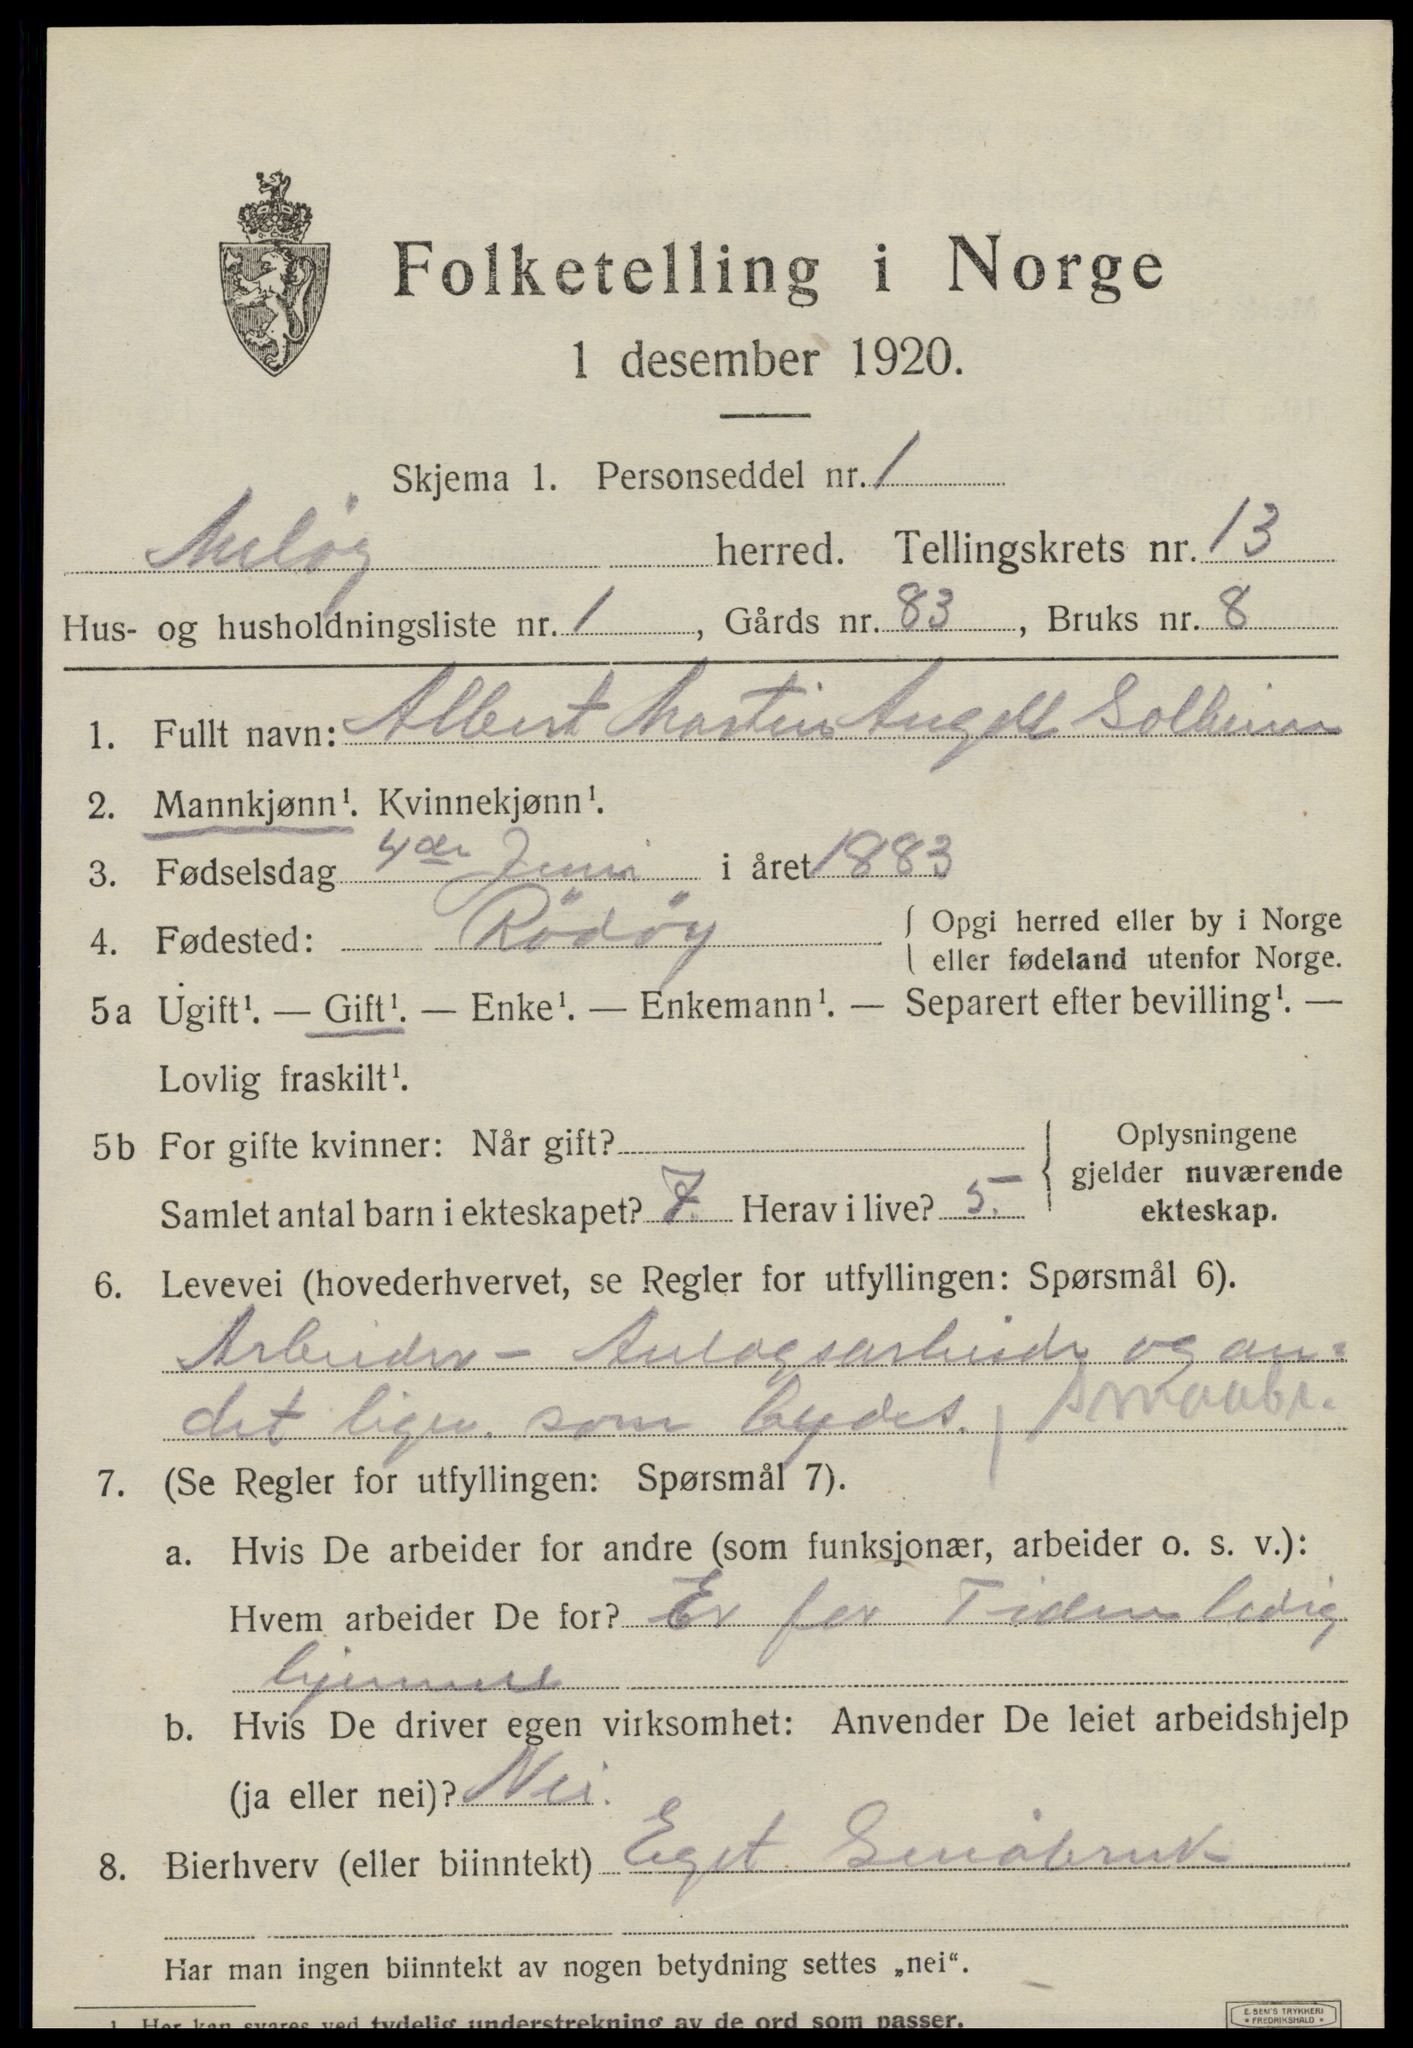 Folketelling i Norge
1 desember 1920.
Skjema 1. Personseddel nr. 1
Meløy herred. Tellingskrets nr. 13
Hus- og husholdningsliste nr. 1, Gårds nr. 83, Bruks nr. 8
1. Fullt navn: Albert Martin Angell Solheim
2. Mannkjønn¹. Kvinnekjønn¹.
3. Fødselsdag 4de Juni i året 1883
4. Fødested: Rödöy { Opgi herred eller by i Norge
eller fødeland utenfor Norge.
5a Ugift¹. — Gift¹. — Enke¹. — Enkemann¹. — Separert efter bevilling¹. —
Lovlig fraskilt¹.
5b For gifte kvinner: Når gift? { Oplysningene
gjelder nuværende
ekteskap.
Samlet antal barn i ekteskapet? 7. Herav i live? 5.
6. Levevei (hovederhvervet, se Regler for utfyllingen: Spørsmål 6).
Arbeider - Anlægsarbeide og an=
det som bydes. / smaabr.
7. (Se Regler for utfyllingen: Spørsmål 7).
a. Hvis De arbeider for andre (som funksjonær, arbeider o. s. v.):
Hvem arbeider De for? Er for Tiden ledig
hjemme
b. Hvis De driver egen virksomhet: Anvender De leiet arbeidshjelp
(ja eller nei)? Nei.
8. Bierhverv (eller biinntekt) Eget Småbruk
Har man ingen biinntekt av nogen betydning settes „nei“.
1 Her kan svares ved tydelig understrekning av de ord som passer.
E. SEM'S TRYKKERI
* FREDRIKSHALD *